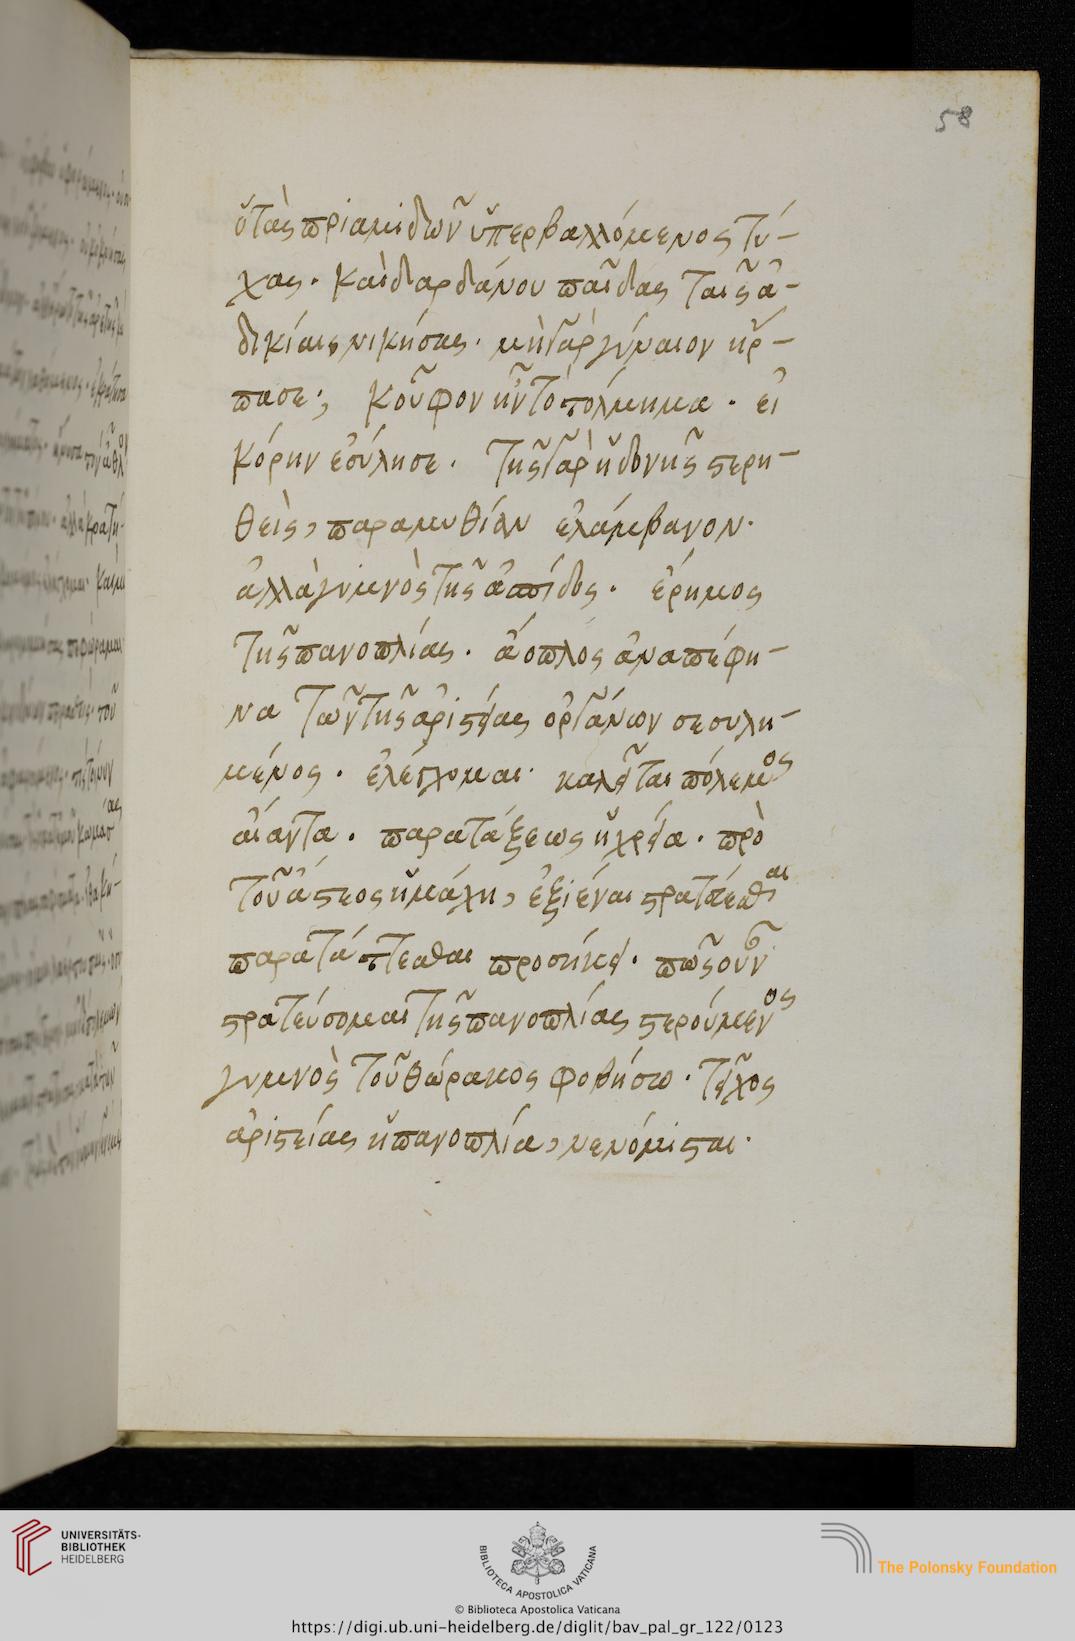 58
ὁ τὰς πριαμιδῶν ὑπερβαλλόμενος τύ-
χας. καὶ δαρδάνου παῖδας ταῖς ἀ-
δικίαις νικήσας. μὴ γὰρ γύναιον ἥρ-
πασε; κοῦφον ἦν τὸ τόλμημα. εἰ
κόρην ἐσύλησε. τῆς γὰρ ἡδονῆς στερη-
θεὶς, παραμυθίαν ἐλάμβανον.
ἀλλὰ γυμνὸς τῆς ἀσπίδος. ἔρημος
τῆς πανοπλίας. ἄοπλος ἀναπέφη-
να τῶν τῆς ἀριστείας ὀργάνων σεσυλη-
μένος. ἐλέγχομαι. καλεῖται πόλεμος
αἴαντα. παρατάξεως ἡ χρεία. πρὸ
τοῦ ἄστεος ἡ μάχη, ἐξιέναι
παρατάττεσθαι προσήκει. πῶς οὖν
στρατεύσομαι τῆς πανοπλίας στερούμενος
γυμνὸς τοῦ θώρακος φοβήσω. τεῖχος
ἀριστείας ἡ πανοπλία, νενόμισται.
UNIVERSITÄTS-
BIBLIOTHEK
HEIDELBERG
BIBLIOTECA APOSTOLICA VATICANA
The Polonsky Foundation
© Biblioteca Apostolica Vaticana
https://digi.ub.uni-heidelberg.de/diglit/bav_pal_gr_122/0123